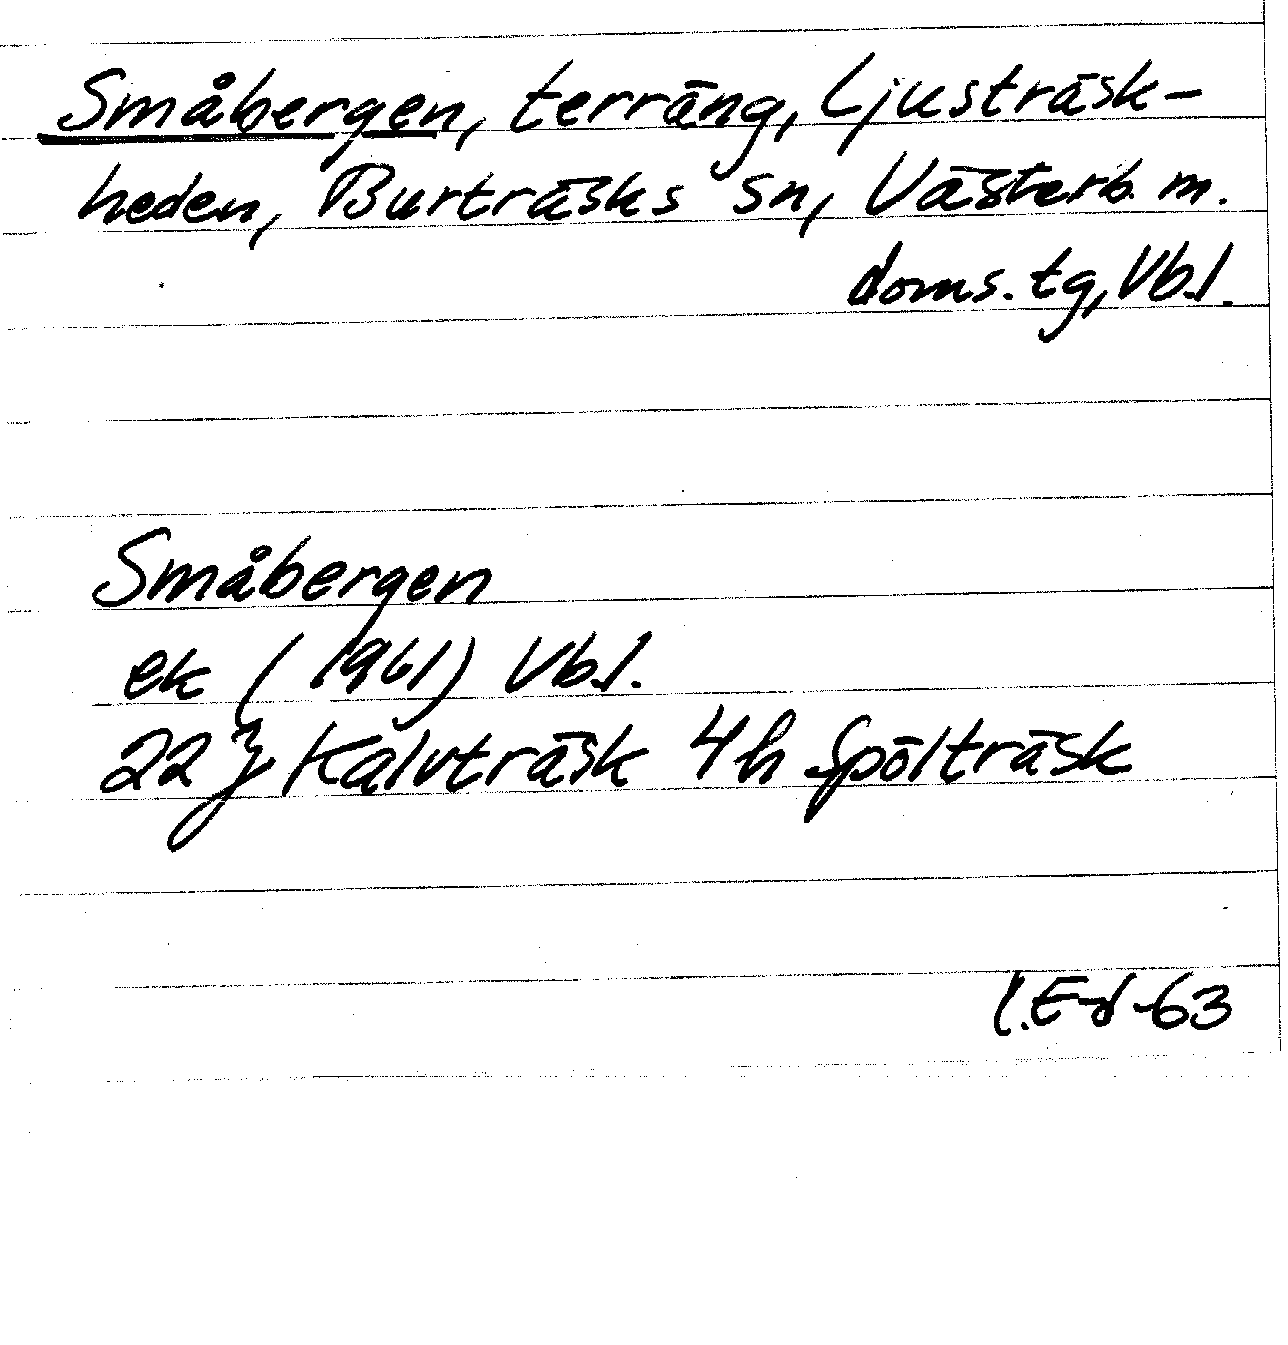 Småbergen, terräng, Ljusträsk-
heden, Burträsks sn, Västerb. m.
doms. tg, Vb.l.
Småbergen
ek (1961) Vb.l.
22 J Kalvträsk 4h Spölträsk
I.E-d -63